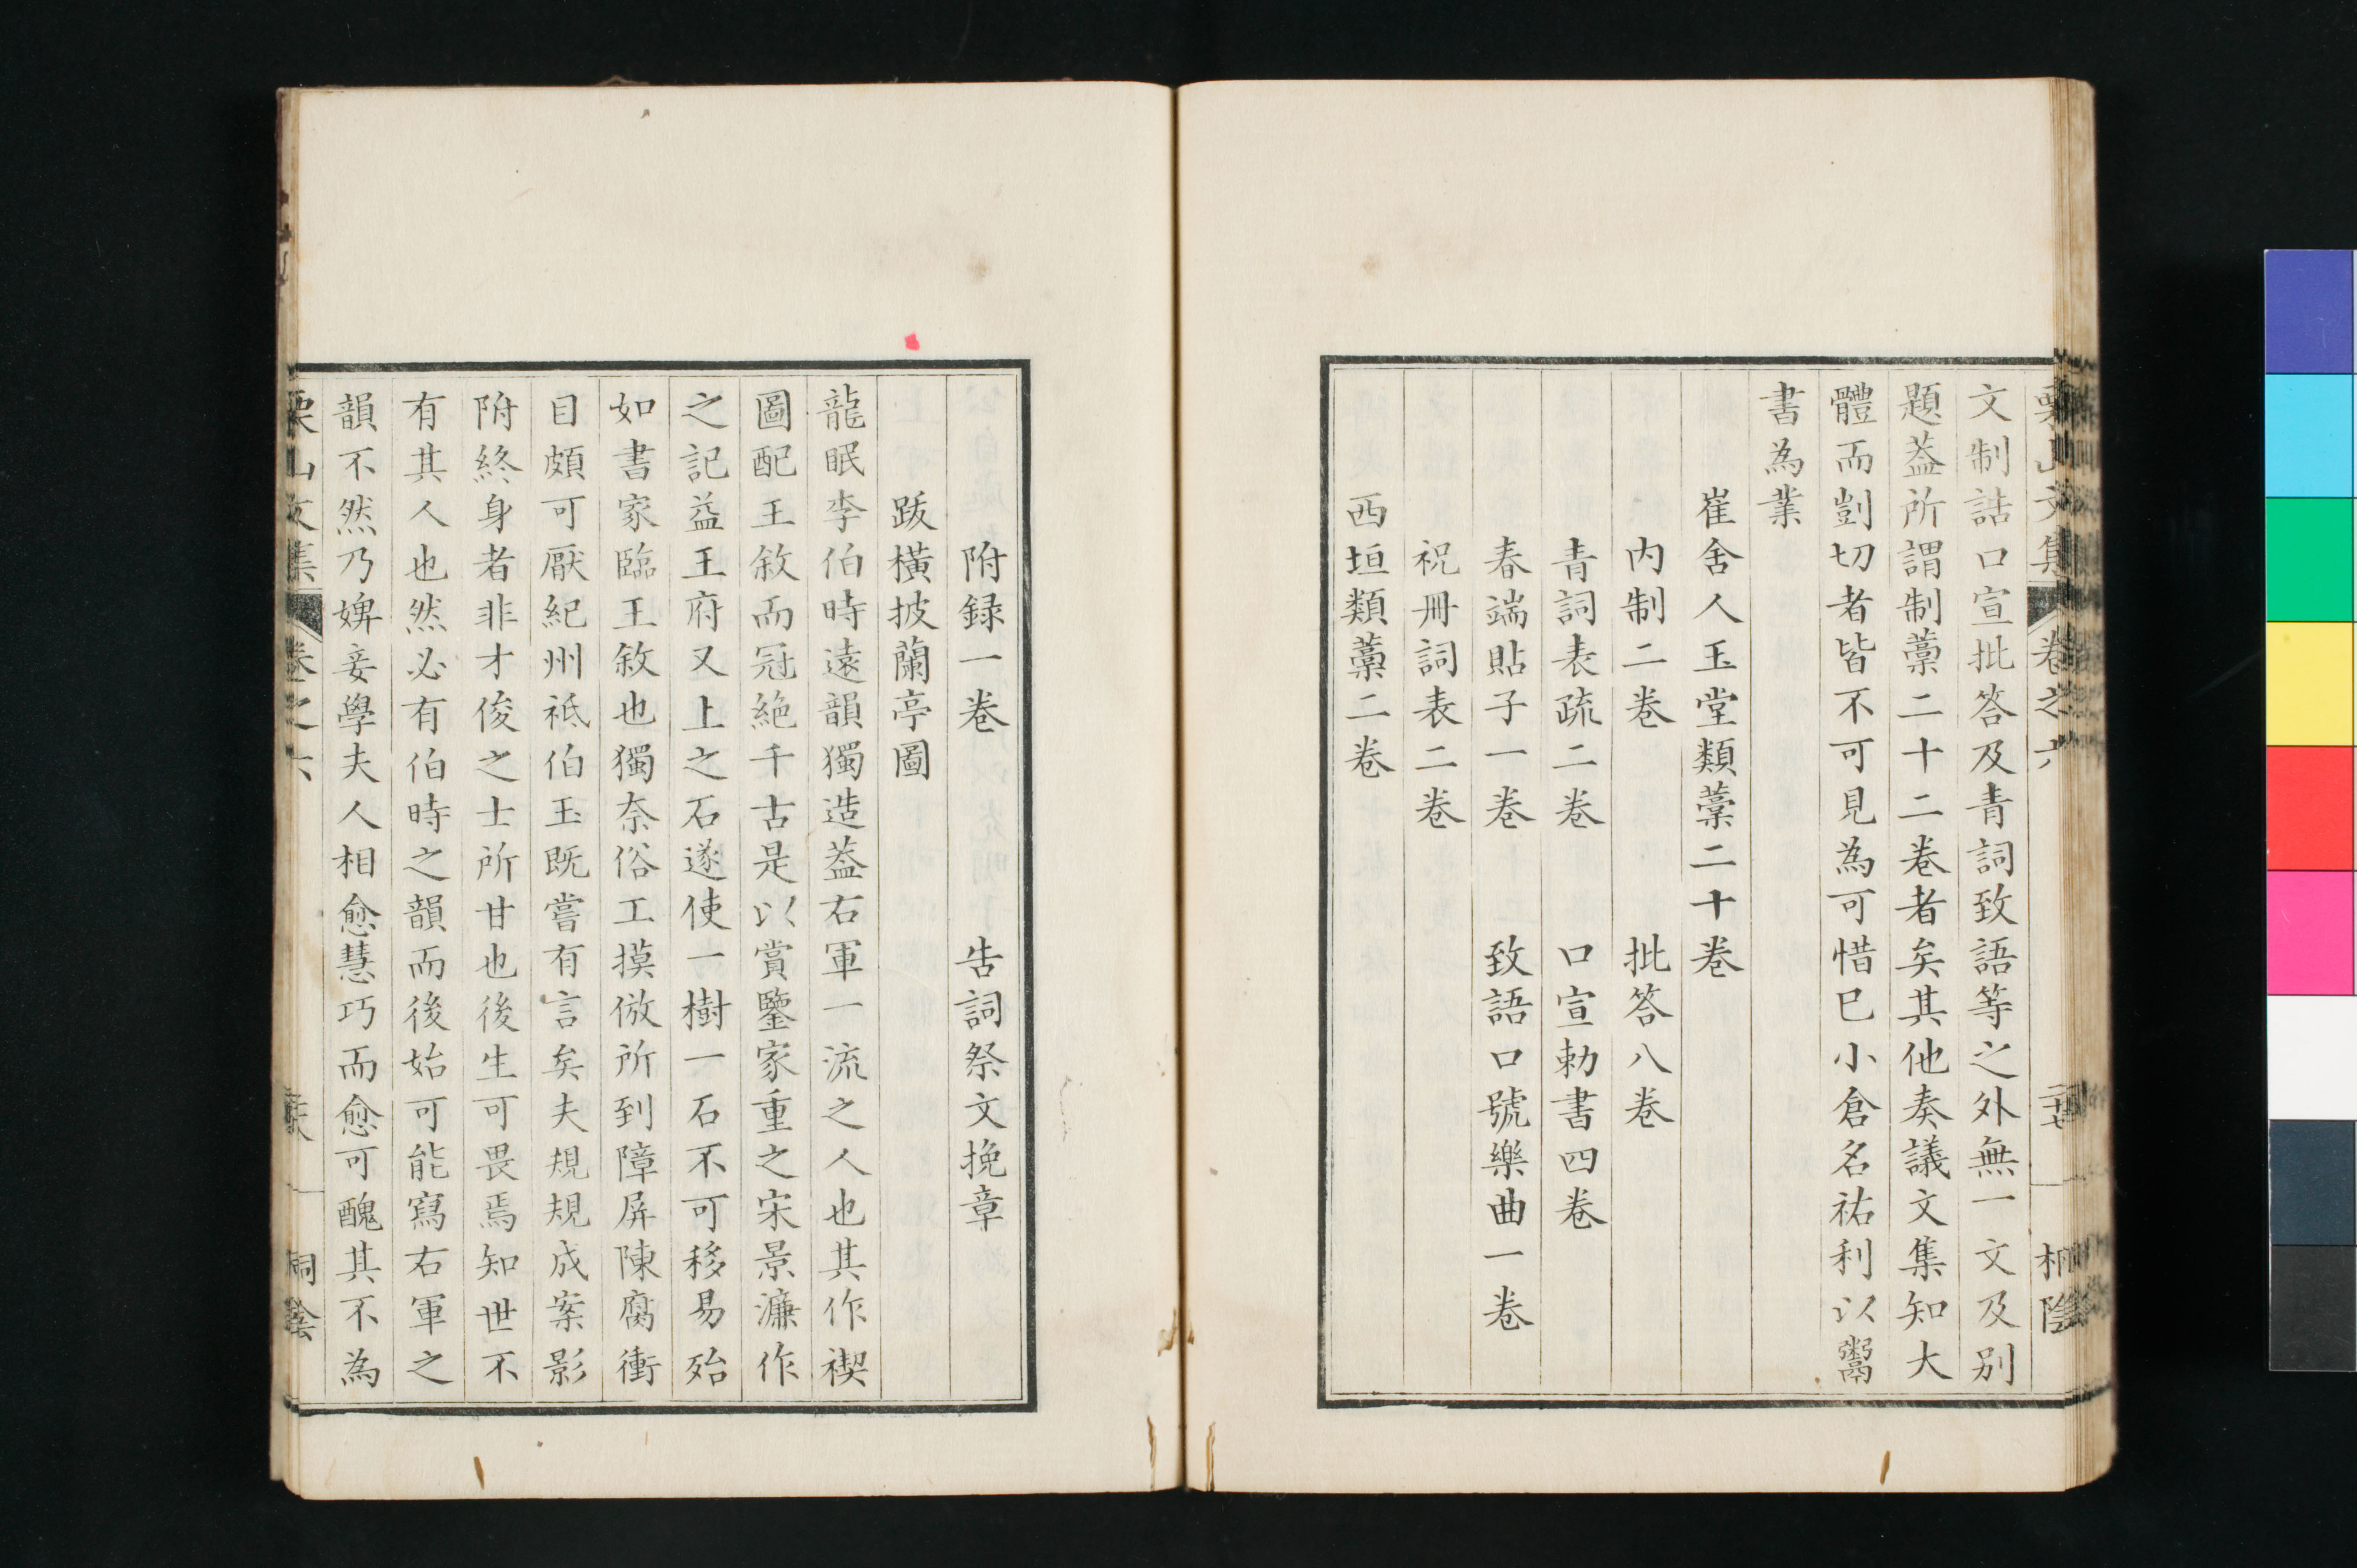 栗山文集 卷之六 二十七 桐陰
文制詁口宣批答及青詞致語等之外無一文及别
題葢所謂制藁二十二卷者矣其他奏議文集知大
體而剴切者皆不可見為可惜巳小倉名祐利以鬻
書為業
崔舍人玉堂類藁二十卷
内制二卷 批答八卷
青詞表疏二卷 口宣勅書四卷
春端貼子一卷 致語口號樂曲一卷
祝冊詞表二卷
西垣類藁二卷
附録一卷 告詞祭文挽章
跋橫披蘭亭圖
龍眠李伯時遠韻獨造葢右軍一流之人也其作禊
圖配王敘而冠絶千古是以賞鑒家重之宋景濂作
之記益王府又上之石遂使一樹一石不可移易殆
如書家臨王敘也獨奈俗工摸倣所到障屏陳腐衝
目頗可厭紀州祇伯玉既嘗有言矣夫規規成案影
附終身者非才俊之士所甘也後生可畏焉知世不
有其人也然必有伯時之韻而後始可能寫右軍之
韻不然乃婢妾學夫人相愈慧巧而愈可醜其不為
栗山文集 卷之六 桐陰